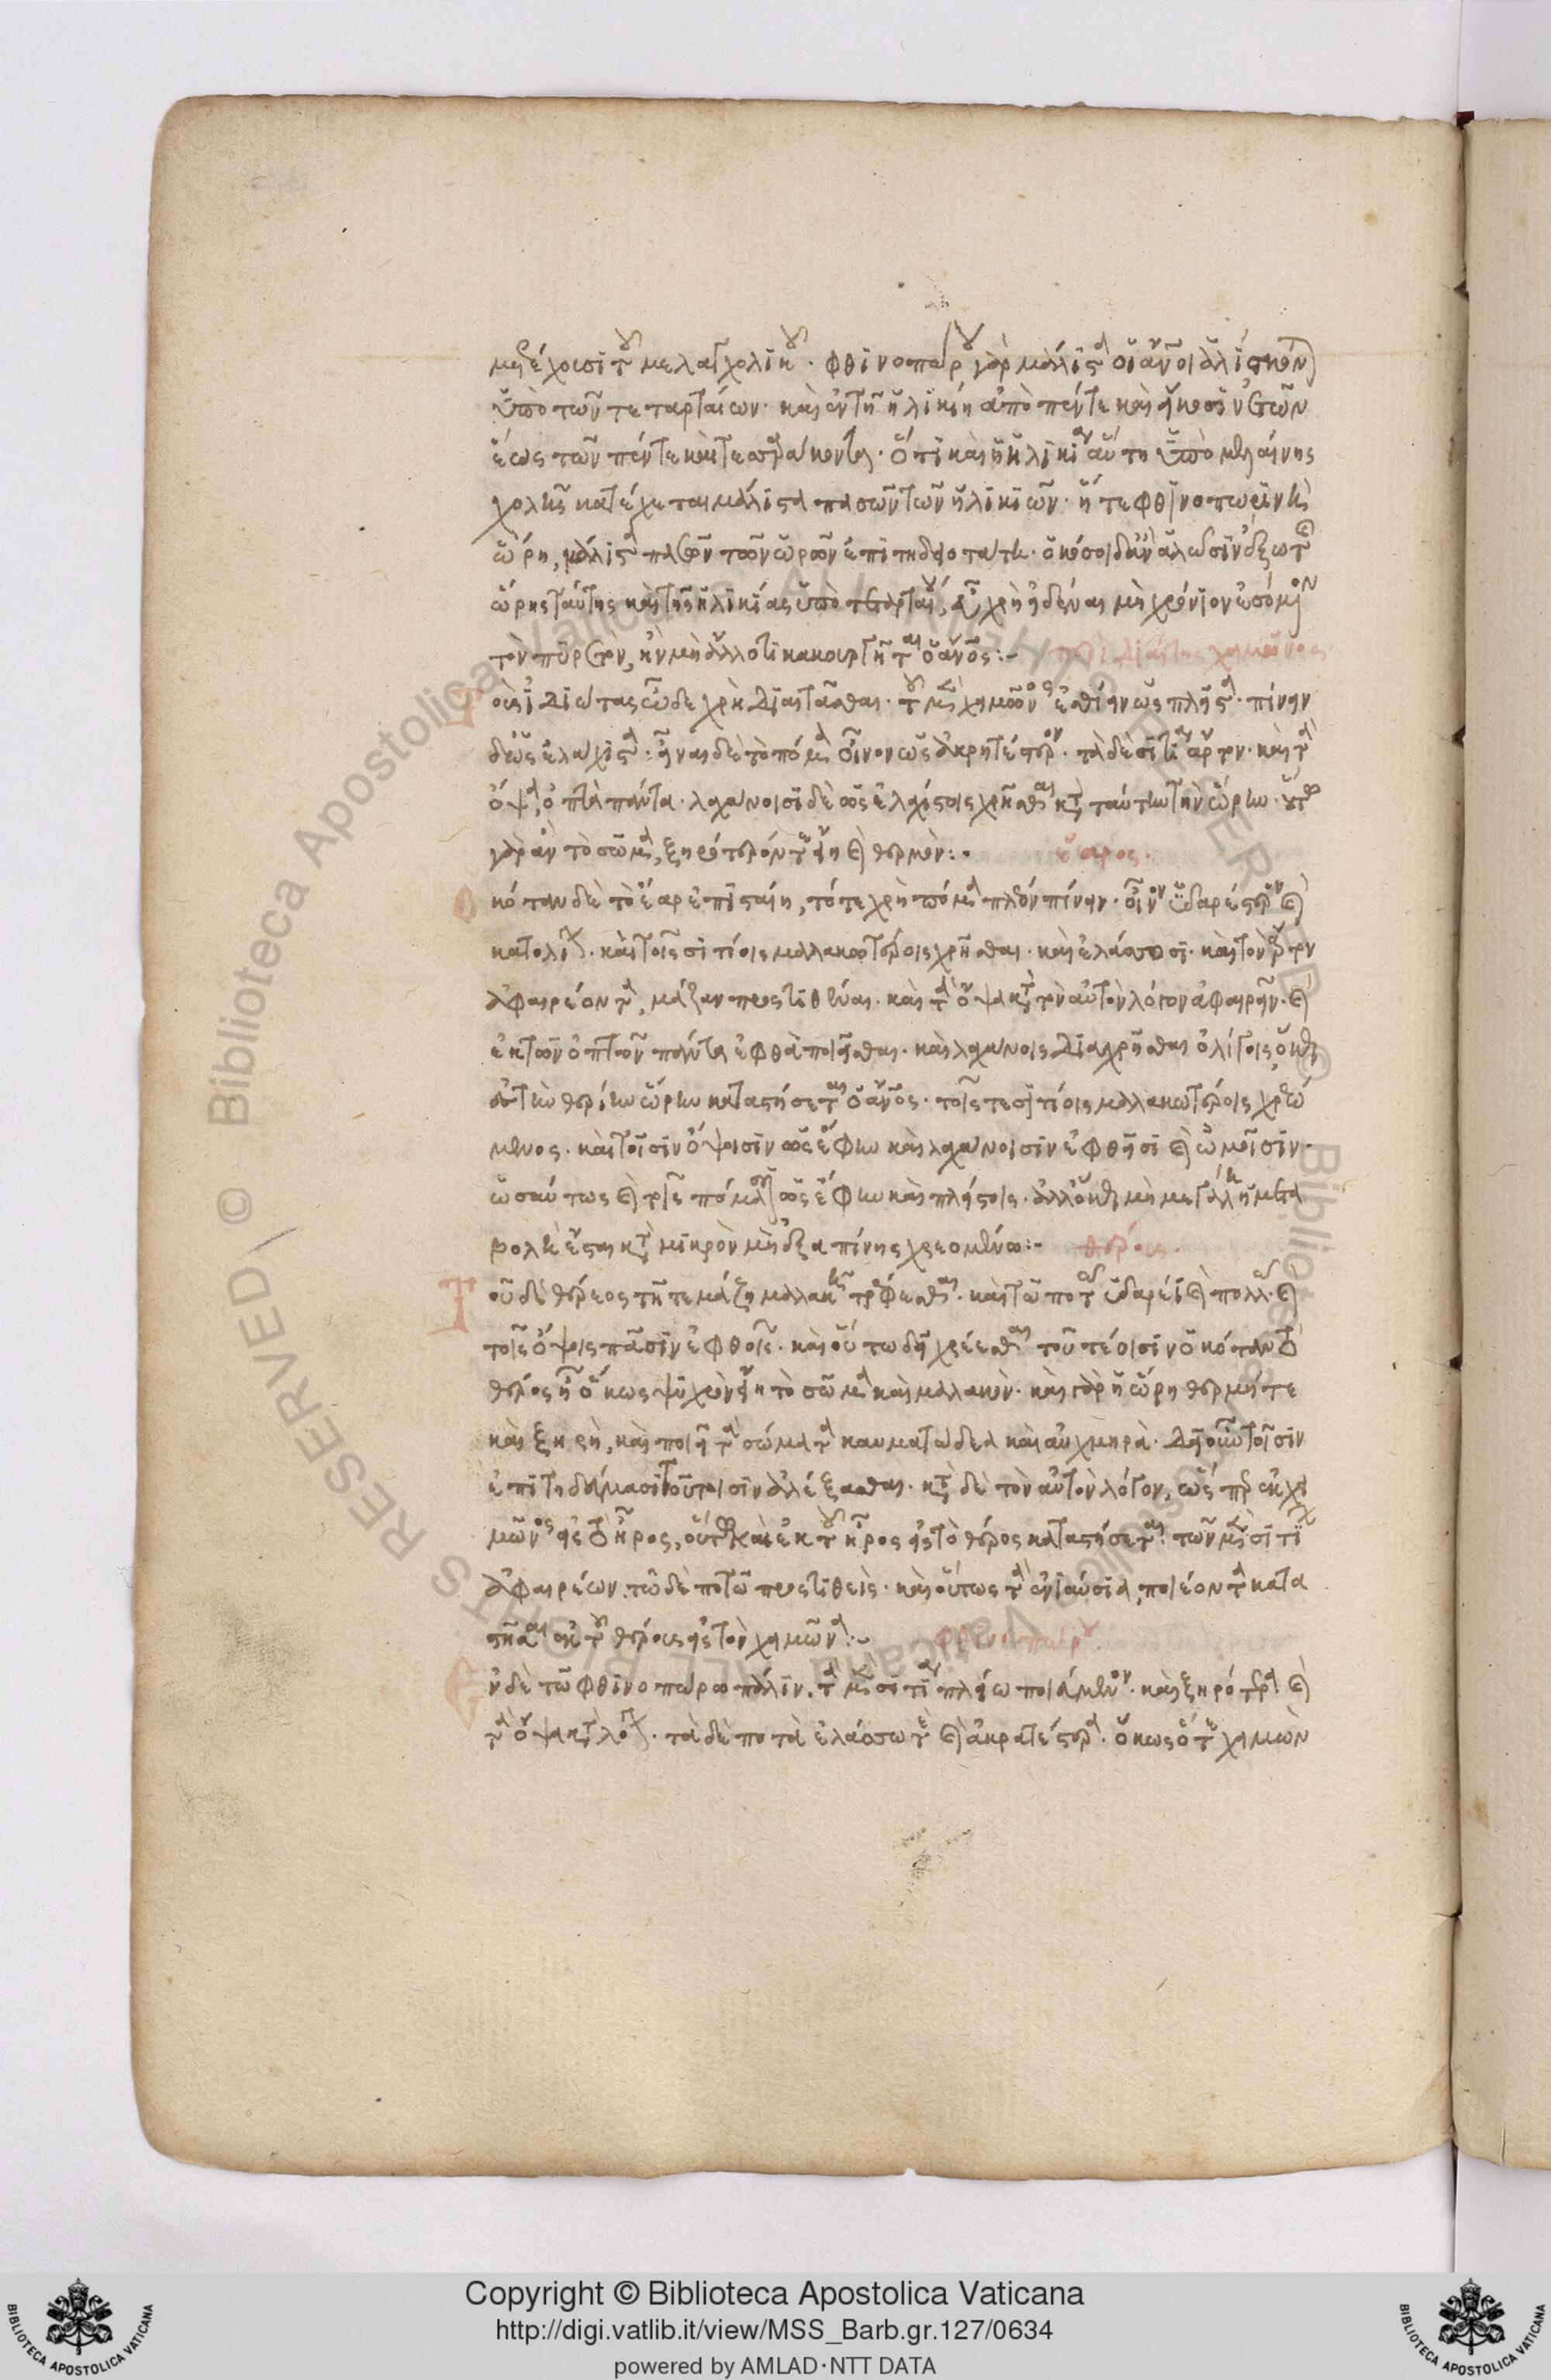 μετέχουσι τοῦ μελαγχολικοῦ. φθινοπώρου γὰρ μάλιστα οἱ ἄνοι ἁλίσκονται
ὑπὸ τῶν τεταρταίων. καὶ ἐν τῆ ἡλικίη ἀπὸ πέντε καὶ εἴκοσιν ἐτέων
ἕως τῶν πέντε καὶ τεσσαράκοντα. ὅτι καὶ ἡ ἡλικία αὕτη ὑπὸ μελαίνης
χολῆς κατέχεται μάλιστα πασῶν τῶν ἡλικιῶν. ἥ τε φθινοπωρινὴ
ὥρη, μάλιστα πασῶν τῶν ὡρῶν ἐπιτηδειοτάτη. ὁκόσοι δ' ἂν ἁλῶσιν ἔξω τε
ὥρης ταύτης καὶ τῆς ἡλικίας ὑπὸ τεταρταίου, εὖ χρὴ εἰδέναι μὴ χρόνιον ἐσόμενον
τὸν πυρετόν, ἢν μὴ ἄλλό τι κακουργῆται ὁ ἄνος:-
περὶ διαίτης χειμῶνος
Τοὺς ἰδιώτας ὧδε χρὴ διαιτᾶσθαι. τοῦ μὲν χειμῶνος ἐσθίειν ὡς πλεῖστα. πίνειν
δ' ὡς ἐλάχιστα. εἶναι δὲ τὸ πόμα οἶνον ὡς ἀκρητέστερον. τὰ δὲ σιτία ἄρτον. καὶ τὰ
ὄψα, ὀπτὰ πάντα. λαχάνοισι δὲ ὡς ἐλαχίστοις χρῆσθαι κατὰ ταύτην τὴν ὥρην. οὕτω
γὰρ ἂν τὸ σῶμα, ξηρότερόν τε εἴη καὶ θερμὸν:.
ἔαρος.
Ὁκόταν δὲ τὸ ἔαρ ἐπισταίη, τότε χρὴ πόμα πλέον πίνειν. οἶνον ὑδαρέστερον καὶ
κατ' ὀλίγον. καὶ τοῖς σιτίοις μαλακωτέροις χρῆσθαι. καὶ ἐλάσσοσι. καὶ τὸν ἄρτον
ἀφαιρέοντα, μάζαν προστιθέναι. καὶ τὰ ὄψα κατὰ τὸν αὐτὸν λόγον ἀφαιρεῖν. καὶ
ἐκ τῶν ὀπτῶν πάντα ἑφθὰ ποιεῖσθαι. καὶ λαχάνοις διαχρῆσθαι ὀλίγοις, ὅκως
ἐς τὴν θερίην ὥρην καταστήσεται ὁ ἄνος. τοῖς τε σιτίοις μαλακωτέροις χρεώ
μενος. καὶ τοῖσιν ὄψοισιν ὡς ἔφην καὶ λαχάνοισιν ἑφθῆσι καὶ ὠμοῖσιν.
ὡσαύτως καὶ τοῖς πόμασιν ὡς ἔφην καὶ πλείστοις. ἀλλ' ὅκως μὴ μεγάλη ἡ μετα
βολὴ ἔσται κατὰ μικρὸν μὴ ἐξαπίνης χρεομένω:-
θέρους.
Τοῦ δὲ θέρεος τῆ τε μάζη μαλακῆ τρέφεσθαι. καὶ τῶ ποτῶ ὑδαρέϊ καὶ πολλῶ. καὶ
τοῖς ὄψοις πᾶσιν ἑφθοῖς. καὶ οὕτω δεῖ χρέεσθαι τουτέοισιν ὁκόταν τὸ
θέρος ἦ ὅκως ψυχρὸν εἴη τὸ σῶμα καὶ μαλακὸν. καὶ γὰρ ἡ ὥρη θερμή τε
καὶ ξηρὴ, καὶ ποιεῖ τὰ σώματα καυματώδεα καὶ αὐχμηρὰ. δεῖ οὖν τοῖσιν
ἐπιτηδεύμασι τούτοισιν ἀλέξασθαι. κατὰ δὲ τὸν αὐτὸν λόγον, ὥσπερ ἐκ χει
μῶνος εἰς τὸ ἦρος, οὕτω καὶ ἐκ τοῦ ἦρος εἰς τὸ θέρος καταστήσεται. τῶν μὲν σιτίων
ἀφαιρέων. τῶ δὲ ποτῶ προστιθεὶς. καὶ οὕτως τὰ ἐναντία, ποιέοντα κατα
στῆσαι ἐκ τοῦ θέρους εἰς τὸν χειμῶνα:-
φθινοπώρου.
Ἐν δὲ τῶ φθινοπώρω πάλιν. τὰ μὲν σιτία πλείω ποιεύμενον. καὶ ξηρότερα. καὶ
τὰ ὄψα κατὰ λόγον. τὰ δὲ ποτὰ ἐλάσσω τε καὶ ἀκρατέστερα. ὅκως ὅ τε χειμὼν
Copyright © Biblioteca Apostolica Vaticana
http://digi.vatlib.it/view/MSS_Barb.gr.127/0634
powered by AMLAD·NTT DATA